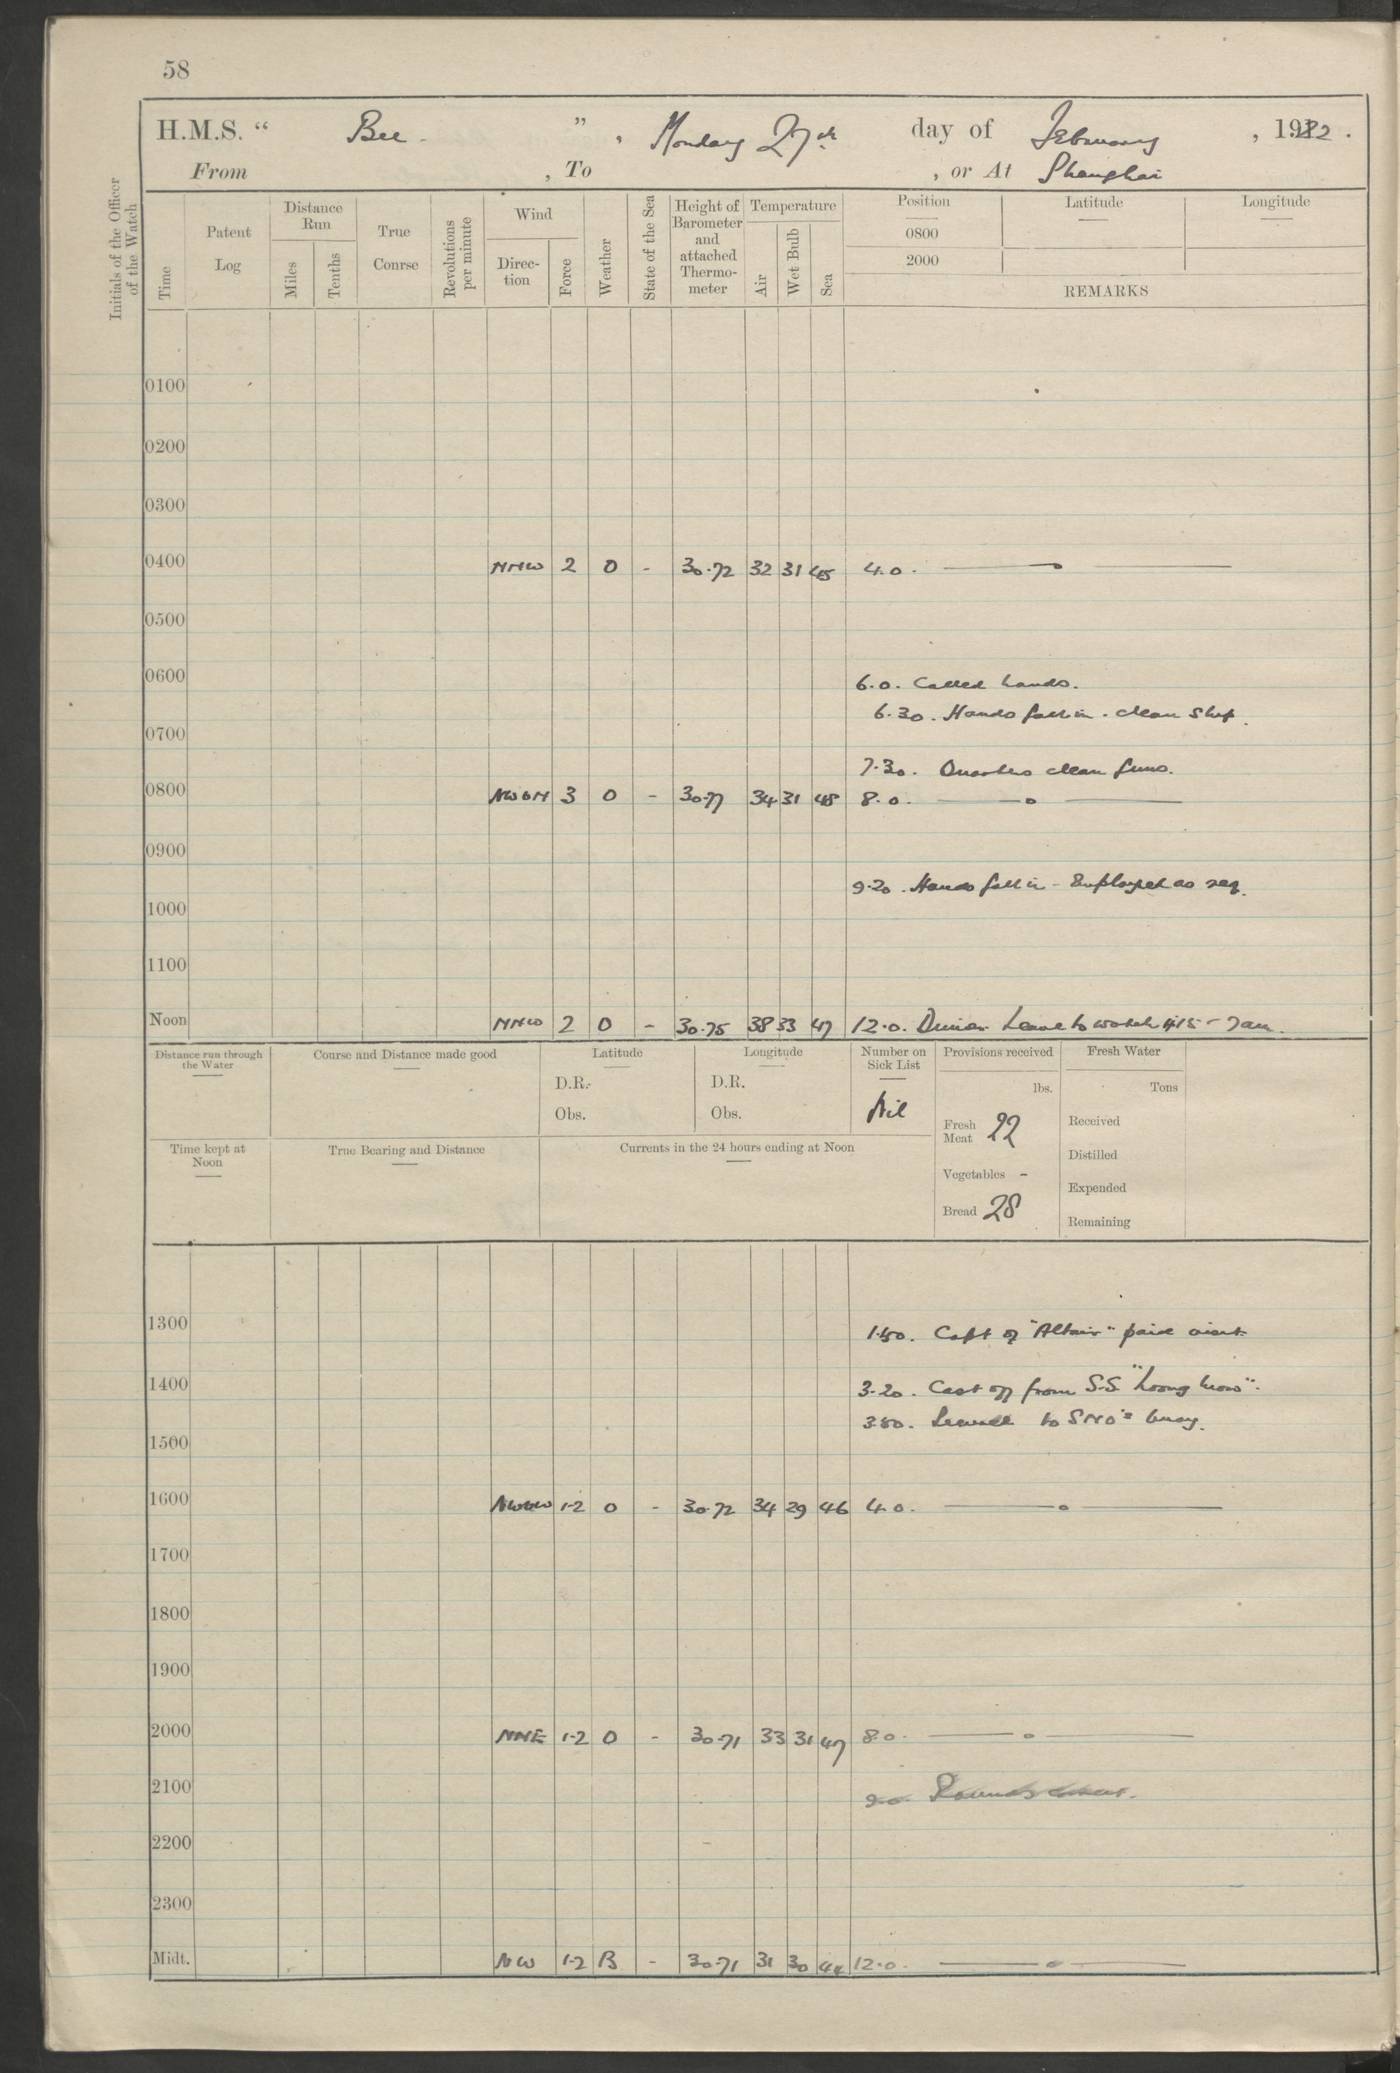 58
H.M.S. “ Bee ” , Monday 27th day of February , 1922 .
From , To , or At Shanghai
Initials of the Officer of the Watch
Time
Patent Log
Distance Run
Miles
Tenths
True Course
Revolutions per minute
Wind
Direc-tion
Force
Weather
State of the Sea
Height of Barometer and attached Thermo-meter
Temperature
Air
Wet Bulb
Sea
Position Latitude Longitude
0800
2000
REMARKS
0100
0200
0300
0400 NNW 2 O - 30.72 32 31 45 4.0. — o —
0500
0600 6.0. Called hands.
6.30. Hands fall in. clean ship.
0700
7.30. Quarters clean guns.
0800 NWbN 3 O - 30.77 34 31 48 8.0. — o —
0900
9.20. Hands fall in - Employed as req.
1000
1100
Noon NNW 2 O - 30.75 38 33 47 12.0. Dinner Leave to watch 4.15 - 7am.
Distance run through the Water
Course and Distance made good
Latitude
D.R.
Obs.
Longitude
D.R.
Obs.
Number on Sick List
Nil
Provisions received
lbs.
Fresh Meat 22
Vegetables -
Bread 28
Fresh Water
Tons
Received
Distilled
Expended
Remaining
Time kept at Noon
True Bearing and Distance
Currents in the 24 hours ending at Noon
1300
1.50. Capt of "Altair" paid visit
1400 3.20. Cast off from S.S.
3.50. Secured to SNO's buoy.
1500
1600 1-2 O - 30.72 34 29 46 4.0. — o —
1700
1800
1900
2000 NNE 1-2 O - 30.71 33 31 47 8.0. — o —
2100 9.0. Rounds
2200
2300
Midt. NW 1-2 B - 30.71 31 30 44 12.0. — o —